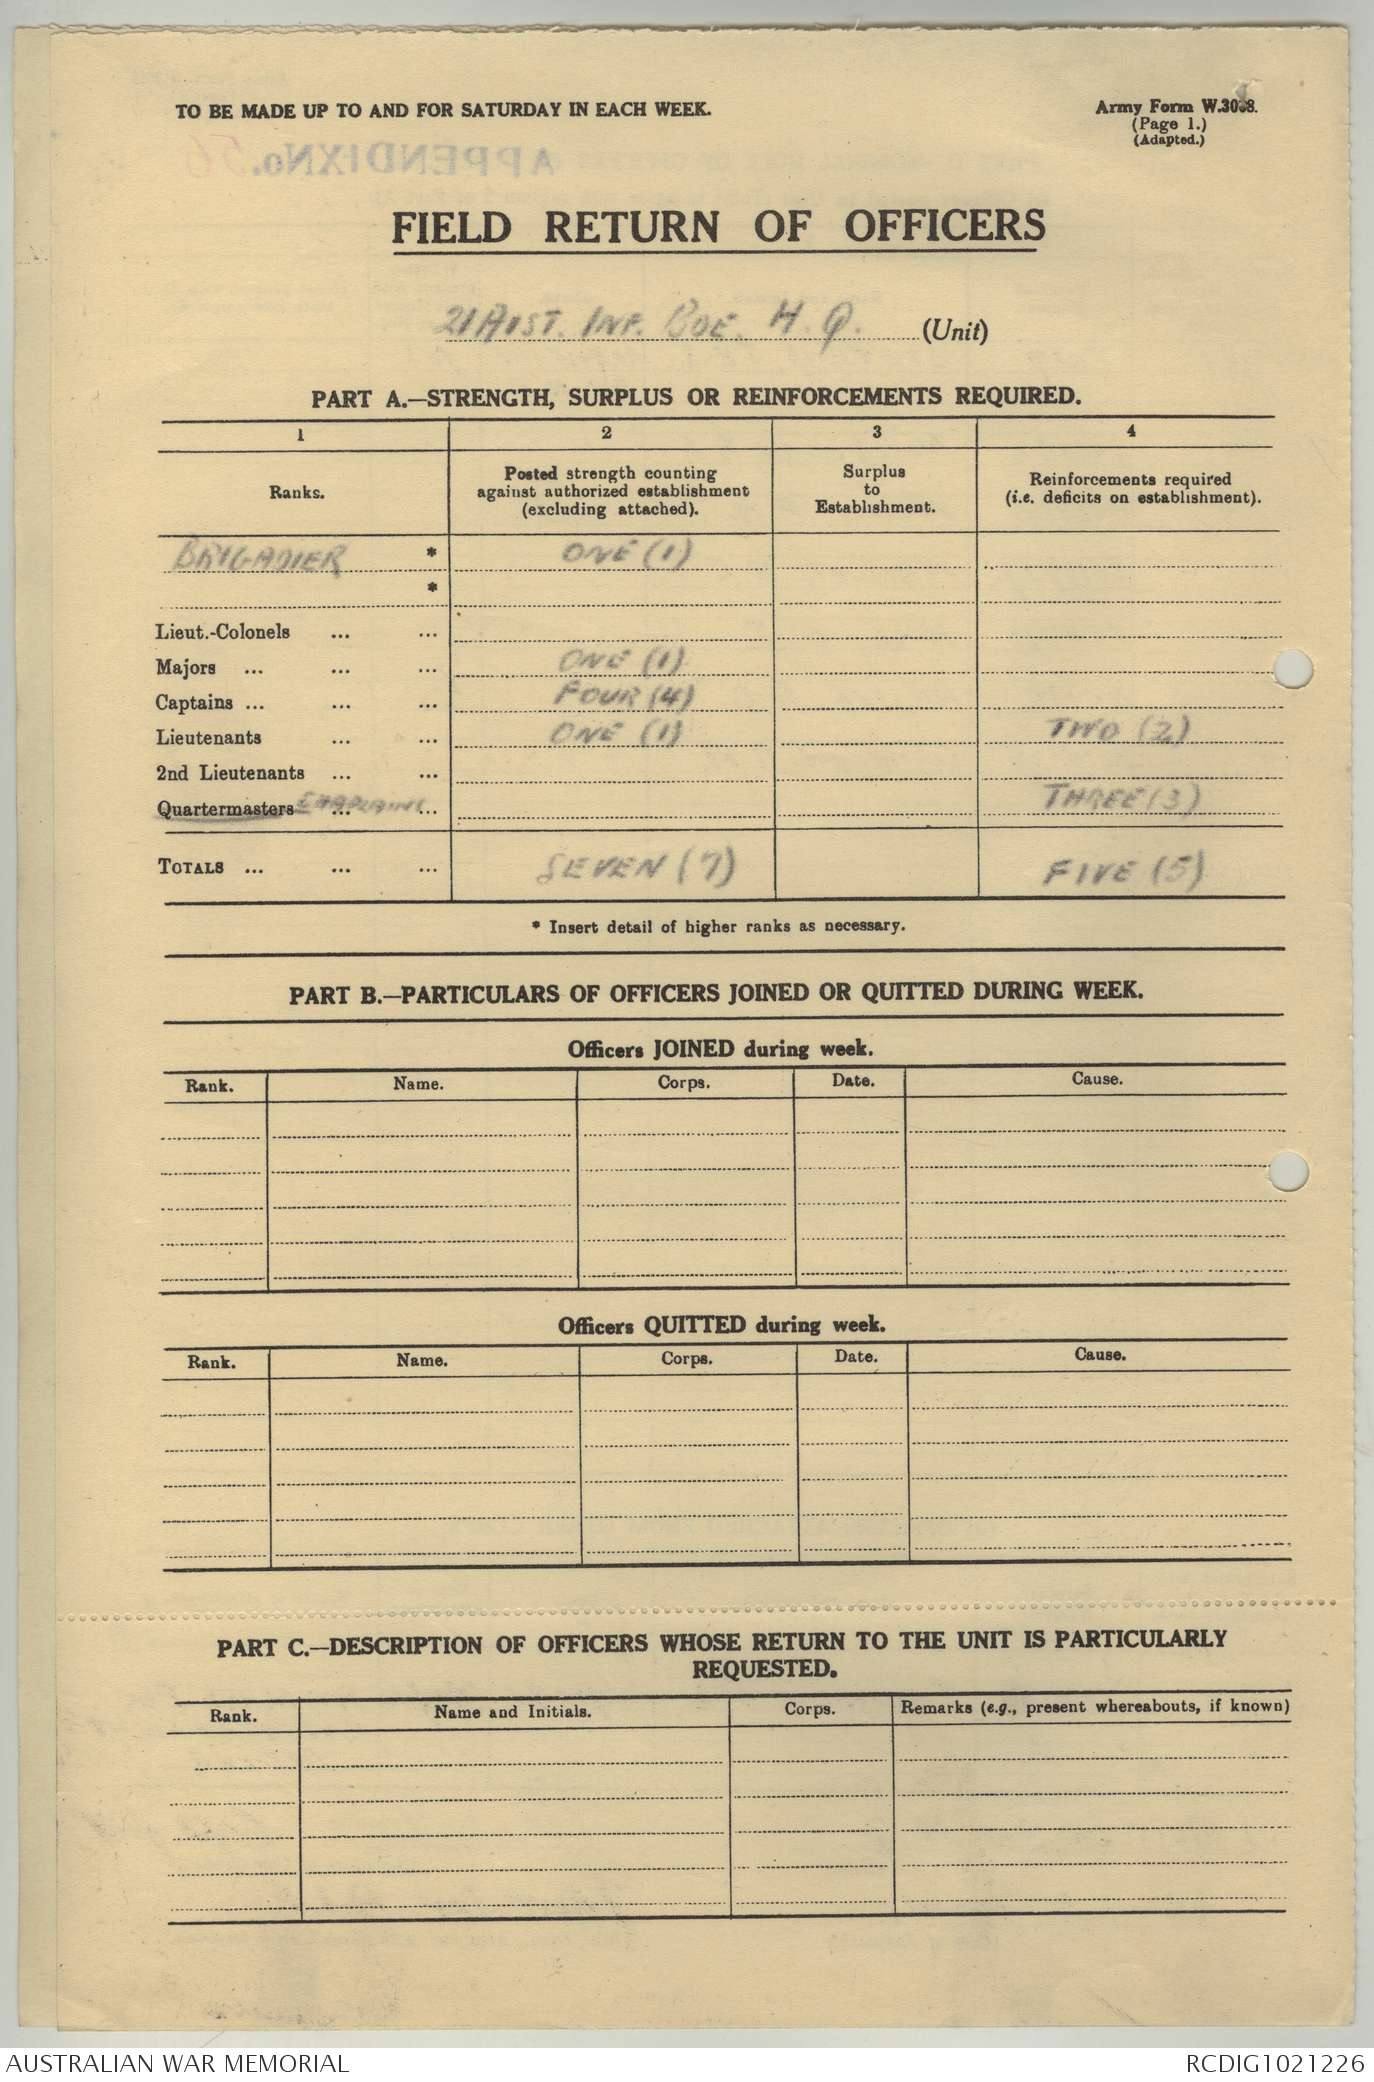 TO BE MADE UP TO AND FOR SATURDAY IN EACH WEEK.
Army Form W.3008.
(Page 1.)
(Adapted.)
APPENDIX No. 56
FIELD RETURN OF OFFICERS
21 AUST. INF. BDE. H.Q. (Unit)
PART A.—STRENGTH, SURPLUS OR REINFORCEMENTS REQUIRED.
1 2 3 4
Ranks. Posted strength counting against authorized establishment (excluding attached). Surplus to Establishment. Reinforcements required (i.e. deficits on establishment).
BRIGADIER * ONE (1)
*
Lieut.-Colonels ... ...
Majors ... ... ... ONE (1)
Captains ... ... ... FOUR (4)
Lieutenants ... ... ONE (1) TWO (2)
2nd Lieutenants ... ...
Quartermasters CHAPLAINS ... ... THREE (3)
TOTALS ... ... ... SEVEN (7) FIVE (5)
* Insert detail of higher ranks as necessary.
PART B.—PARTICULARS OF OFFICERS JOINED OR QUITTED DURING WEEK.
Officers JOINED during week.
Rank. Name. Corps. Date. Cause.
Officers QUITTED during week.
Rank. Name. Corps. Date. Cause.
PART C.—DESCRIPTION OF OFFICERS WHOSE RETURN TO THE UNIT IS PARTICULARLY
REQUESTED.
Rank. Name and Initials. Corps. Remarks (e.g., present whereabouts, if known)
AUSTRALIAN WAR MEMORIAL RCDIG1021226